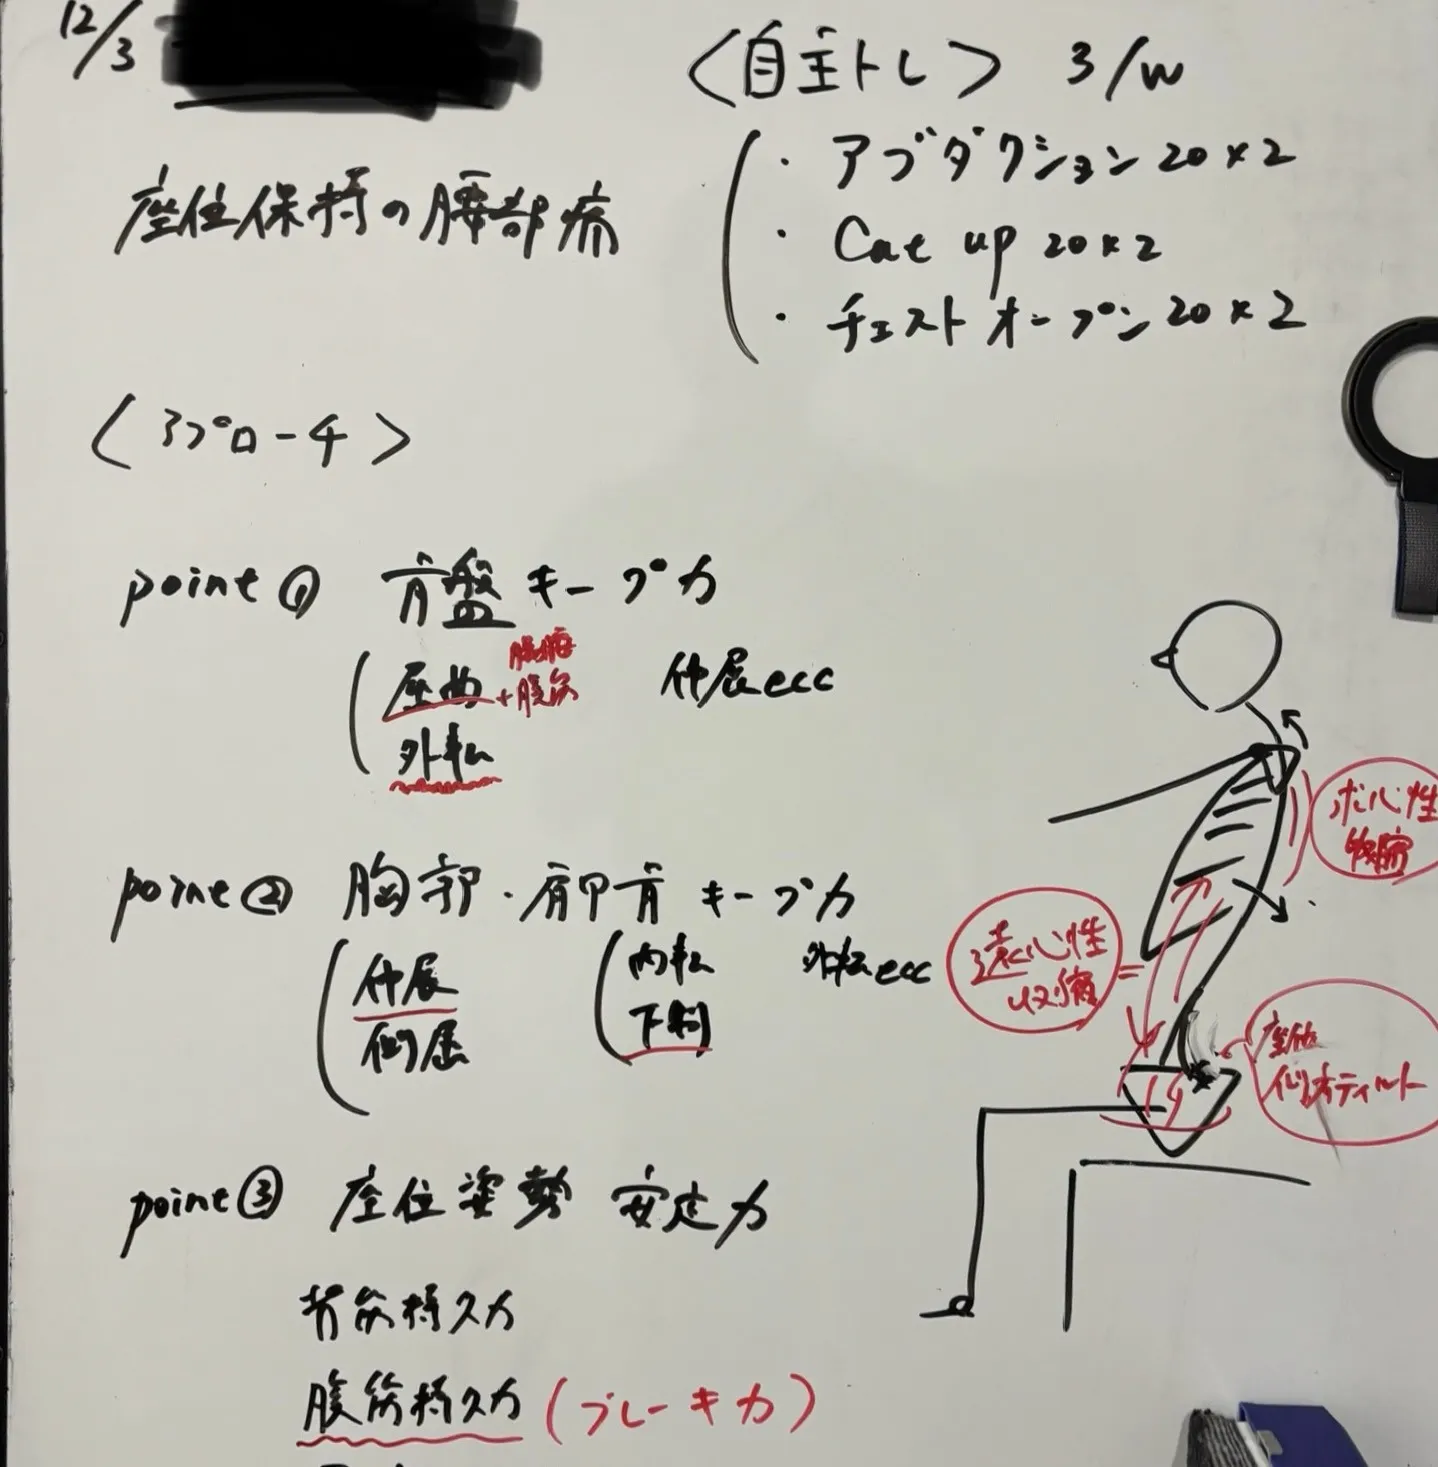 12/3
座位保持の腰部痛
<自主トレ> 3/w
・アブダクション 20×2
・Cat up 20×2
・チェストオープン 20×2
<アプローチ>
point① 骨盤キープ力
屈曲 + 腹筋
外転
伸展ecc
point② 胸郭・肩甲骨 キープ力
伸展
側屈
内転
下制
外転ecc
point③ 座位姿勢 安定力
背筋持久力
腹筋持久力 (ブレーキ力)
求心性
収縮
遠心性
収縮
座位
後方ティルト